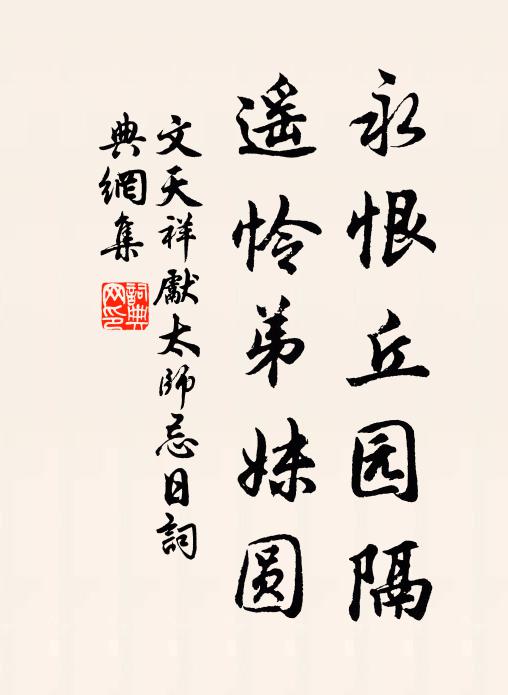 永恨丘园隔
遥怜弟妹圆
文天祥獻太師忌日詞
典網集
詞典网印